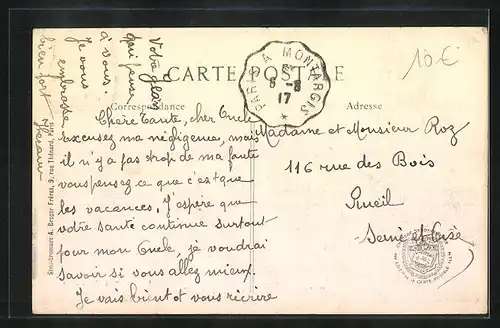 CARTE POSTALE
Correspondance
Adresse
PARIS A MONTARGIS
5 - 8
17
10 €
Chère Tante, cher Oncle
excusez ma négligence, mais
il n'y a pas trop de ma faute
vous pensez ce que c'est que
les vacances. J'espère que
votre santé continue surtout
pour mon Oncle, je voudrai
savoir si vous allez mieux.
Je vais bientôt vous réécrire
Votre
qui pense
à vous.
Je vous
embrasse
bien fort
Madame et Monsieur Roz
116 rue des Bois
Rueil
Seine et Oise
Simi-bromure A. Breger Frères, 9, rue Thénard, Paris